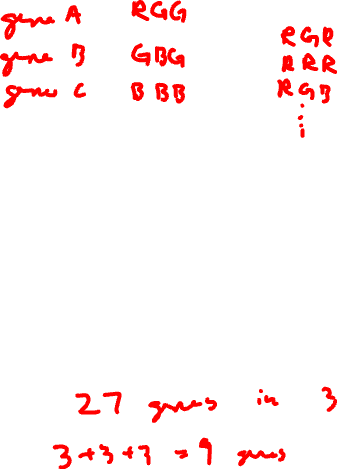 gene A RGG
gene B GBG
gene C BBB
RGR
RRR
RGB
27 genes in 3
3+3+3 = 9 genes